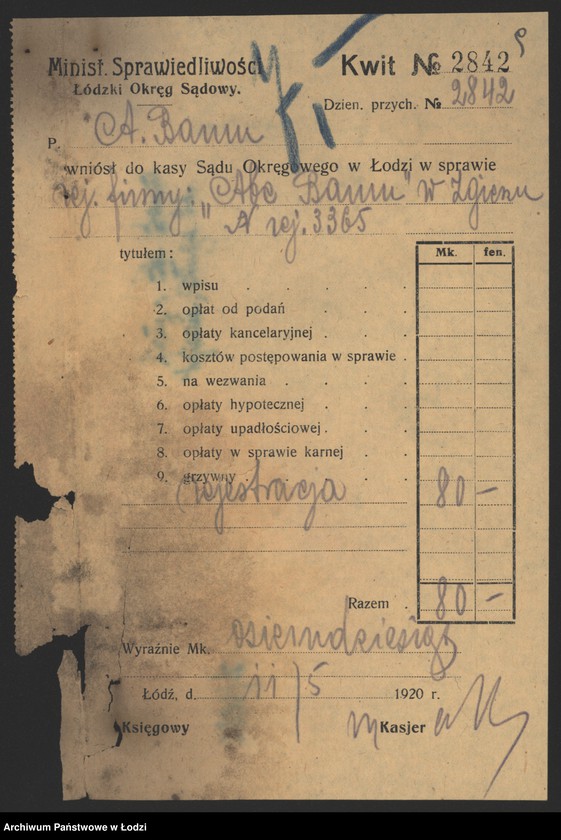 Minist. Sprawiedliwości
Łódzki Okręg Sądowy.
Kwit № 2842
9
Dzien. przych. № 2842
P. A. Baum
wniósł do kasy Sądu Okręgowego w Łodzi w sprawie
rej. firmy: „Abe Baum" w Zgierzu
A rej. 3365
tytułem:
Mk. fen.
1. wpisu
2. opłat od podań
3. opłaty kancelaryjnej
4. kosztów postępowania w sprawie
5. na wezwania
6. opłaty hypotecznej
7. opłaty upadłościowej
8. opłaty w sprawie karnej
9. grzywny
rejestracja 80 –
Razem 80 –
Wyraźnie Mk. osiemdziesiąt
Łódź, d. 11/5 1920 r.
Księgowy Kasjer
Archiwum Państwowe w Łodzi